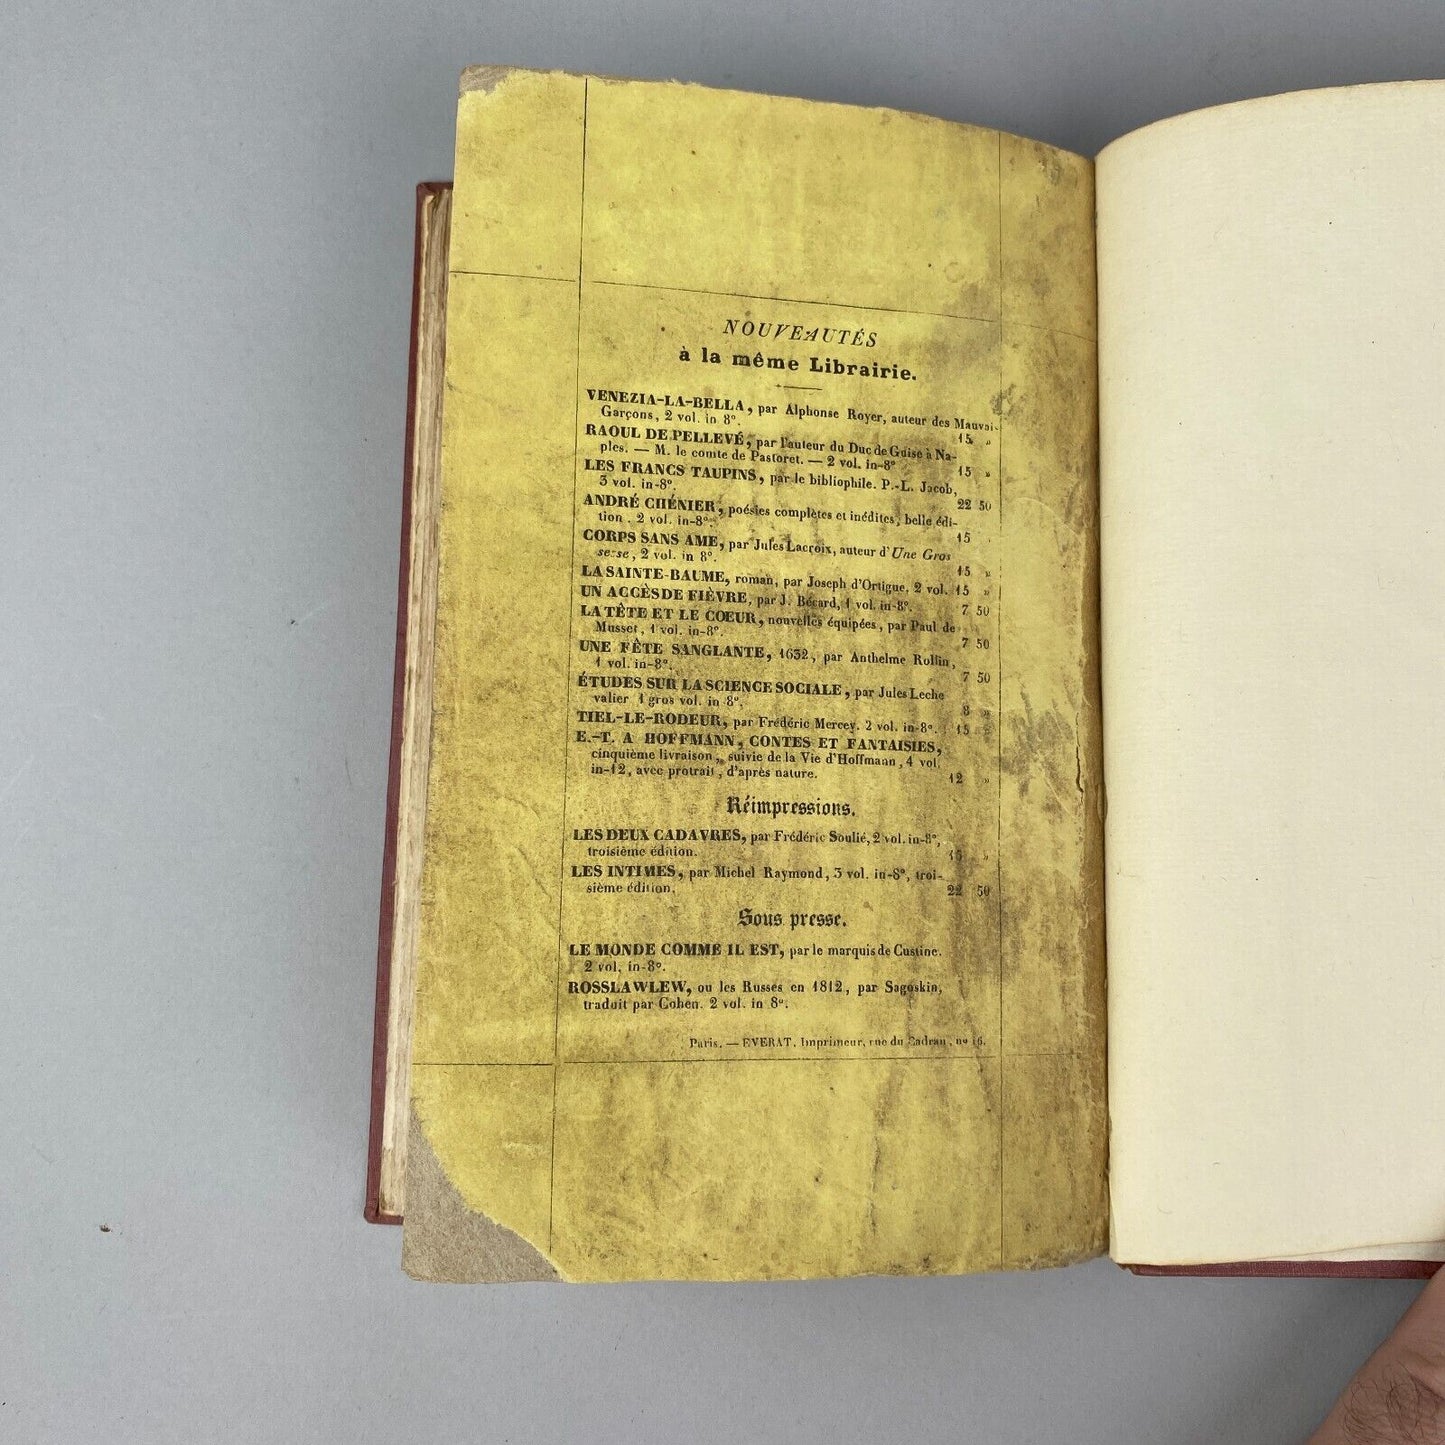 NOUVEAUTÉS
à la même Librairie.
VENEZIA-LA-BELLA, par Alphonse Royer, auteur des Mauvai-
Garçons, 2 vol. in 8°. 15 »
RAOUL DE PELLEVÉ, par l'auteur du Duc de Guise à Na-
ples. — M. le comte de Pastoret. — 2 vol. in-8° 15 »
LES FRANCS TAUPINS, par le bibliophile. P.-L. Jacob,
3 vol. in-8°. 22 50
ANDRÉ CHÉNIER, poésies complètes et inédites, belle édi-
tion. 2 vol. in-8°. 15
CORPS SANS AME, par Jules Lacroix, auteur d'Une Gros
sesse, 2 vol. in 8°. 15 »
LA SAINTE-BAUME, roman, par Joseph d'Ortigue, 2 vol. 15 »
UN ACCÈS DE FIÈVRE, par J. Bécard, 1 vol. in-8°. 7 50
LA TÊTE ET LE CŒUR, nouvelles équipées, par Paul de
Musset, 1 vol. in-8°. 7 50
UNE FÊTE SANGLANTE, 1632, par Anthelme Rollin,
1 vol. in-8°. 7 50
ÉTUDES SUR LA SCIENCE SOCIALE, par Jules Leche
valier 1 gros vol. in 8°. 8 »
TIEL-LE-RODEUR, par Frédéric Mercey. 2 vol. in-8°. 15 »
E.-T. A HOFFMANN, CONTES ET FANTAISIES,
cinquième livraison, suivie de la Vie d'Hoffmann, 4 vol.
in-12, avec protrait, d'après nature. 12 »
Réimpressions.
LES DEUX CADAVRES, par Frédéric Soulié, 2 vol. in-8°,
troisième édition. 15 »
LES INTIMES, par Michel Raymond, 3 vol. in-8°, troi-
sième édition. 22 50
Sous presse.
LE MONDE COMME IL EST, par le marquis de Custine.
2 vol. in-8°.
ROSSLAWLEW, ou les Russes en 1812, par Sagoskin,
traduit par Cohen. 2 vol. in 8°.
Paris. — EVERAT, Imprimeur, rue du Cadran, n° 16.